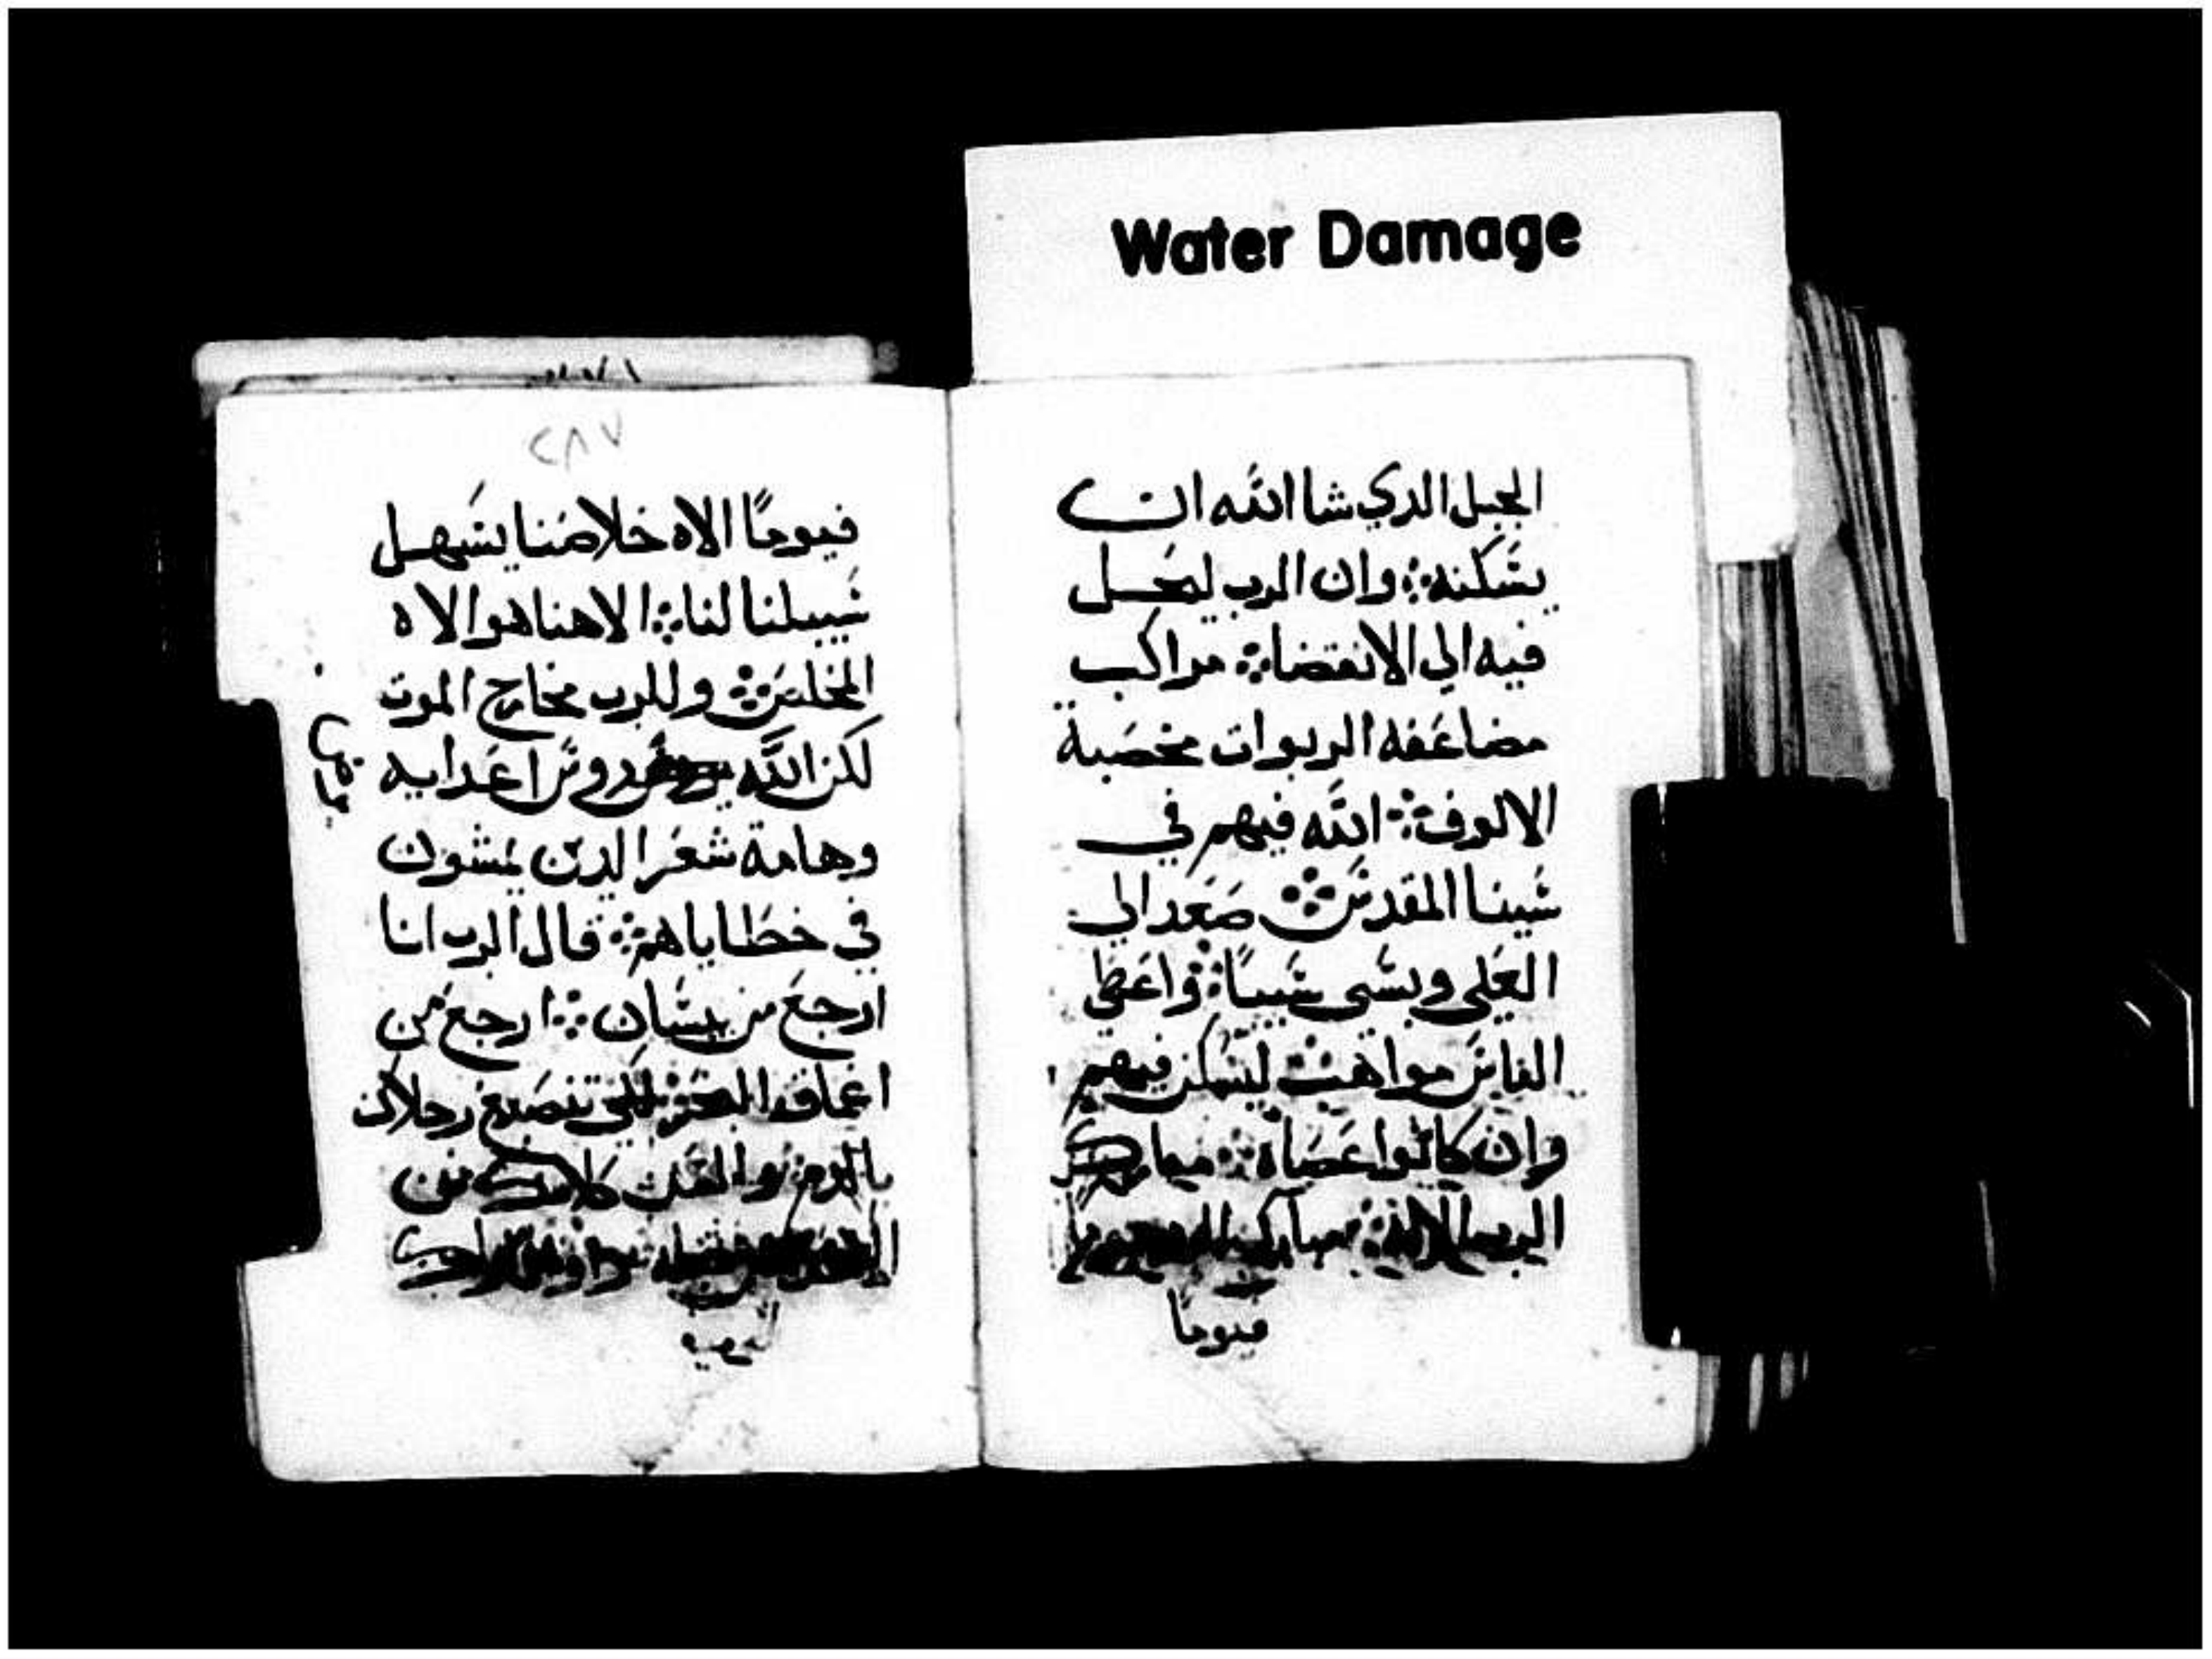 Water Damage
الجبل الدي شا الله ان
يسكنه وان الرب ليحل
فيه الي الانقضا مراكب
مضاعفه الربوات مخصبة
الالوف الله فيهم في
سينا المقدس صعد الي
العلي وسبي سبيًا واعطي
الناس مواهب ليسكن فيهم
وان كانوا عصاه
الرب الاله مبارك
فيومًا
٢٨٧
فيومًا الاه خلاصنا يسهل
سبيلنا لنا الاهنا هو الاه
المخلص وللرب مخارج الموت
لكن الله روس اعدايه
يرضض
وهامة شعر الدين يمشون
في خطاياهم قال الرب انا
ارجع من بيسان ارجع من
اعماق البحر لكي تنصبغ رجلاك
بالدم والسن كلابك من